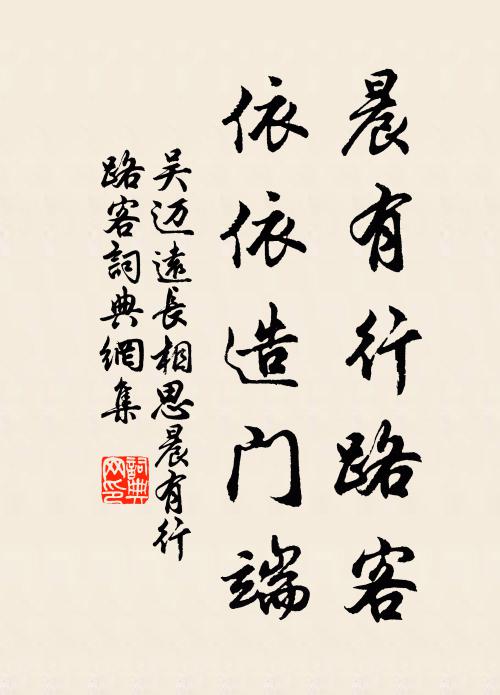 晨有行路客
依依造门端
吴迈遠長相思晨有行
路客詞典網集
詞典
网印